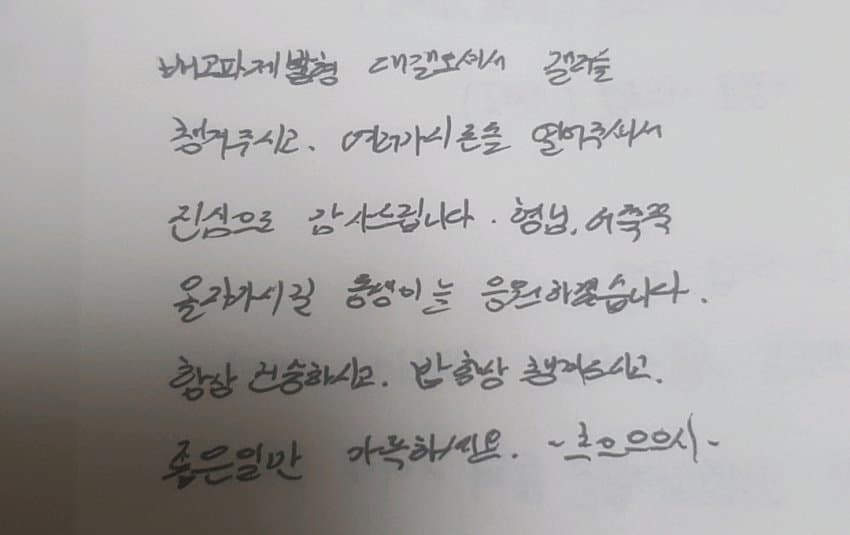 배고파제발형 대갤오셔서 갤러들
챙겨주시고. 여러가시론을 열어주셔서
진심으로 감사드립니다. 형님, 어쭉쭉
올라가시길 동생이는 응원하겠습니다.
항상 건승하시고. 밥 항상 챙겨드시고.
좋은일만 가득하세요. ~츠으으으시~